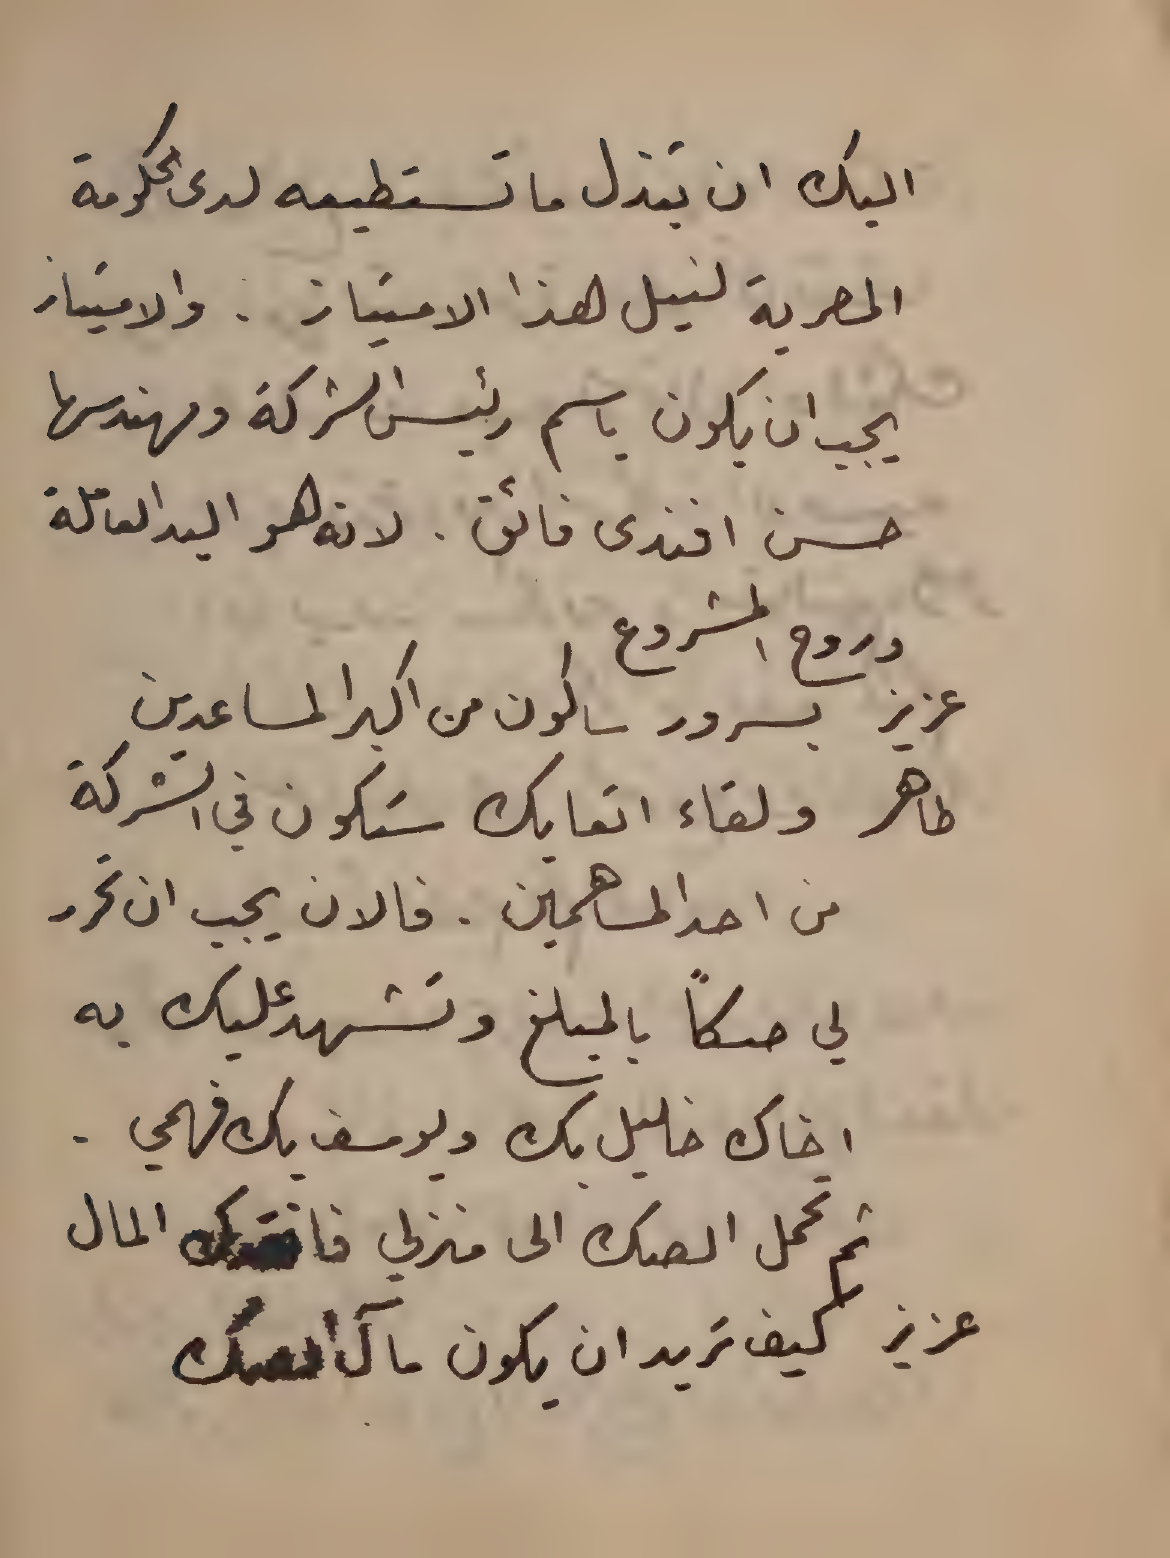 اليك ان تبذل ما تستطيعه لدى الحكومة
المصرية لنيل هذا الامتياز . والامتياز
يجب ان يكون باسم رئيس الشركة ومهندسها
حسن افندى فائق . لانه هو اليد العاملة
وروح المشروع
عزيز بسرور ساكون من اكبر المساعدين
طاهر ولقاء اتعابك ستكون في الشركة
من احد المساهمين . فالان يجب ان تحرر
لي صكاً بالمبلغ وتشهد عليك به
اخاك خليل بك ويوسف بك فهمي .
ثم تحمل الصك الى منزلي فانقدك المال
عزيز كيف تريد ان يكون مآل الصك